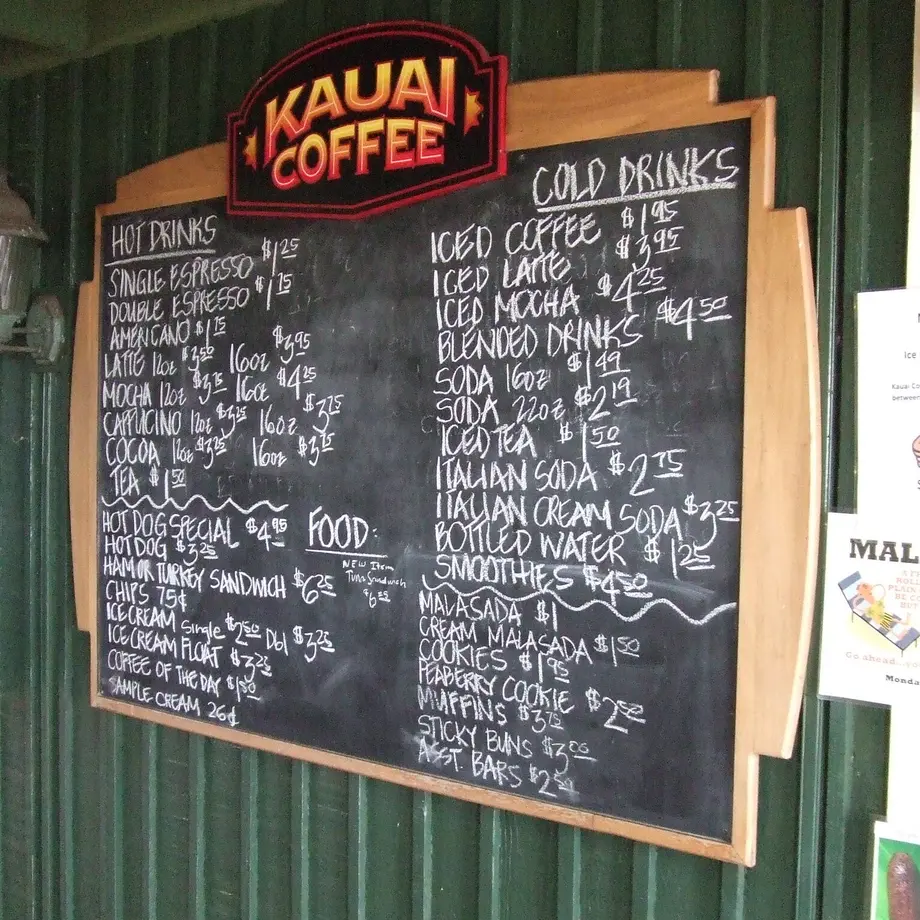 KAUAI
COFFEE
HOT DRINKS
SINGLE ESPRESSO $1.25
DOUBLE ESPRESSO $1.75
AMERICANO $1.75
LATTE 12oz $3.50 16oz $3.95
MOCHA 12oz $3.75 16oz $4.25
CAPPUCINO 12oz $3.25 16oz $3.75
COCOA 12oz $3.25 16oz $3.75
TEA $1.50
FOOD:
HOT DOG SPECIAL $4.95
HOT DOG $3.25
HAM OR TURKEY SANDWICH $6.25
CHIPS 75¢
ICE CREAM Single $2.50 Dbl $3.25
ICE CREAM FLOAT $3.25
COFFEE OF THE DAY $1.50
SAMPLE CREAM 26¢
NEW Item
Tuna Sandwich
COLD DRINKS
ICED COFFEE $1.95
ICED LATTE $3.95
ICED MOCHA $4.25
BLENDED DRINKS $4.50
SODA 16oz $1.49
SODA 22oz $2.19
ICED TEA $1.50
ITALIAN SODA $2.75
ITALIAN CREAM SODA $3.25
BOTTLED WATER $1.25
SMOOTHIES $4.50
MALASADA $1
CREAM MALASADA $1.50
COOKIES $1.95
PEABERRY COOKIE $2.50
MUFFINS $3.75
STICKY BUNS $3.00
ASST. BARS $2.50
Ice
Kauai Co
between
MAL
ROLL
PLAIN
BE CO
BU
Go ahead...yo
Monda